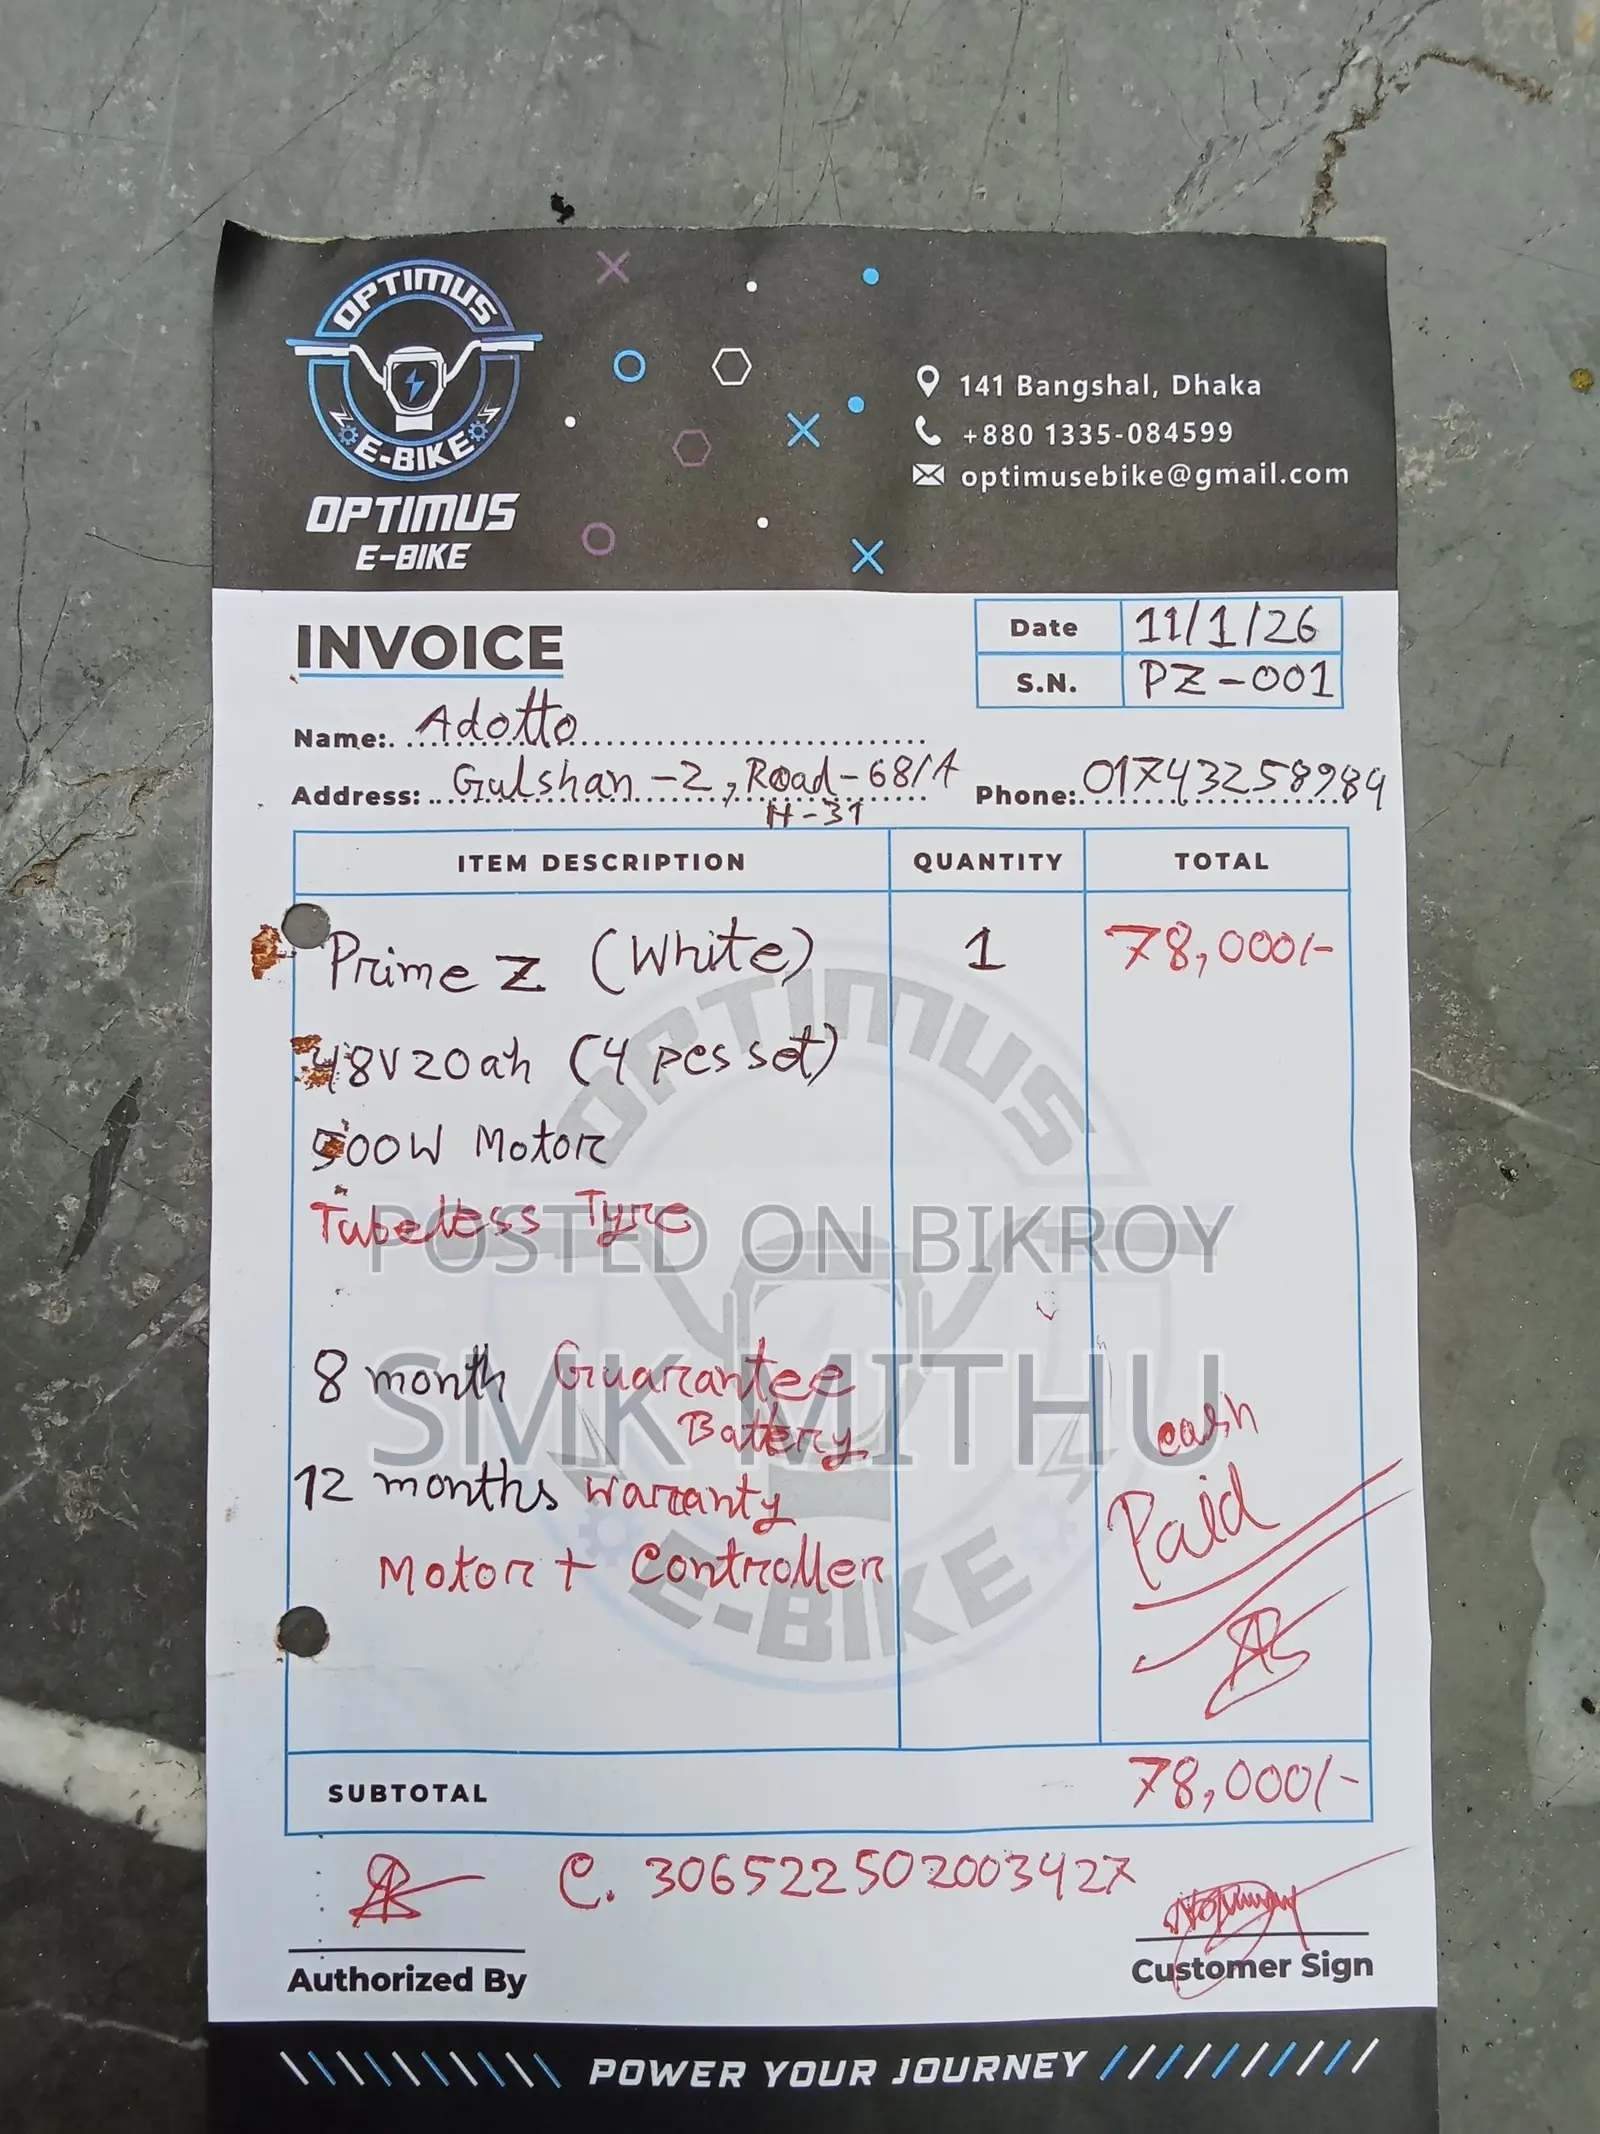 OPTIMUS
E-BIKE
OPTIMUS
E-BIKE
141 Bangshal, Dhaka
+880 1335-084599
optimusebike@gmail.com
INVOICE
Date 11/1/26
S.N. PZ-001
Name: Adotto
Address: Gulshan-2, Road-68/A
H-31
Phone: 01743258984
ITEM DESCRIPTION QUANTITY TOTAL
Prime Z (White) 1 78,000/-
48V20ah (4 pcs set)
500W Motor
Tubeless Tyre
POSTED ON BIKROY
8 month Guarantee
Battery
SMK MITHU
12 months Warranty
Motor + Controller
cash
Paid
OPTIMUS
E-BIKE
SUBTOTAL 78,000/-
C. 306522502003427
Authorized By
Customer Sign
POWER YOUR JOURNEY